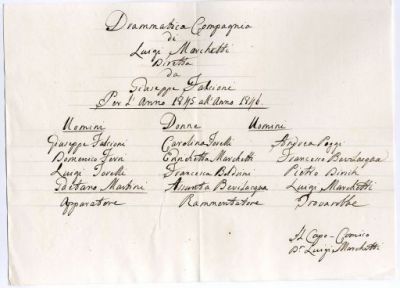 Drammatica Compagnia
di
Luigi Marchetti
Diretta
da
Giuseppe Falcioni
Per l'Anno 1845 all'Anno 1846.
Uomini Donne Uomini
Giuseppe Falcioni Carolina Torelli Andrea Poggi
Domenico Enrichetta Marchetti Francesco Bevilacqua
Luigi Torelli Francesca Balduini Pietro
Gaetano Martini Assunta Bevilacqua Luigi Marchetti
Apparatore Rammentatore Trovarobbe
Il Capo-Comico
Luigi Marchetti